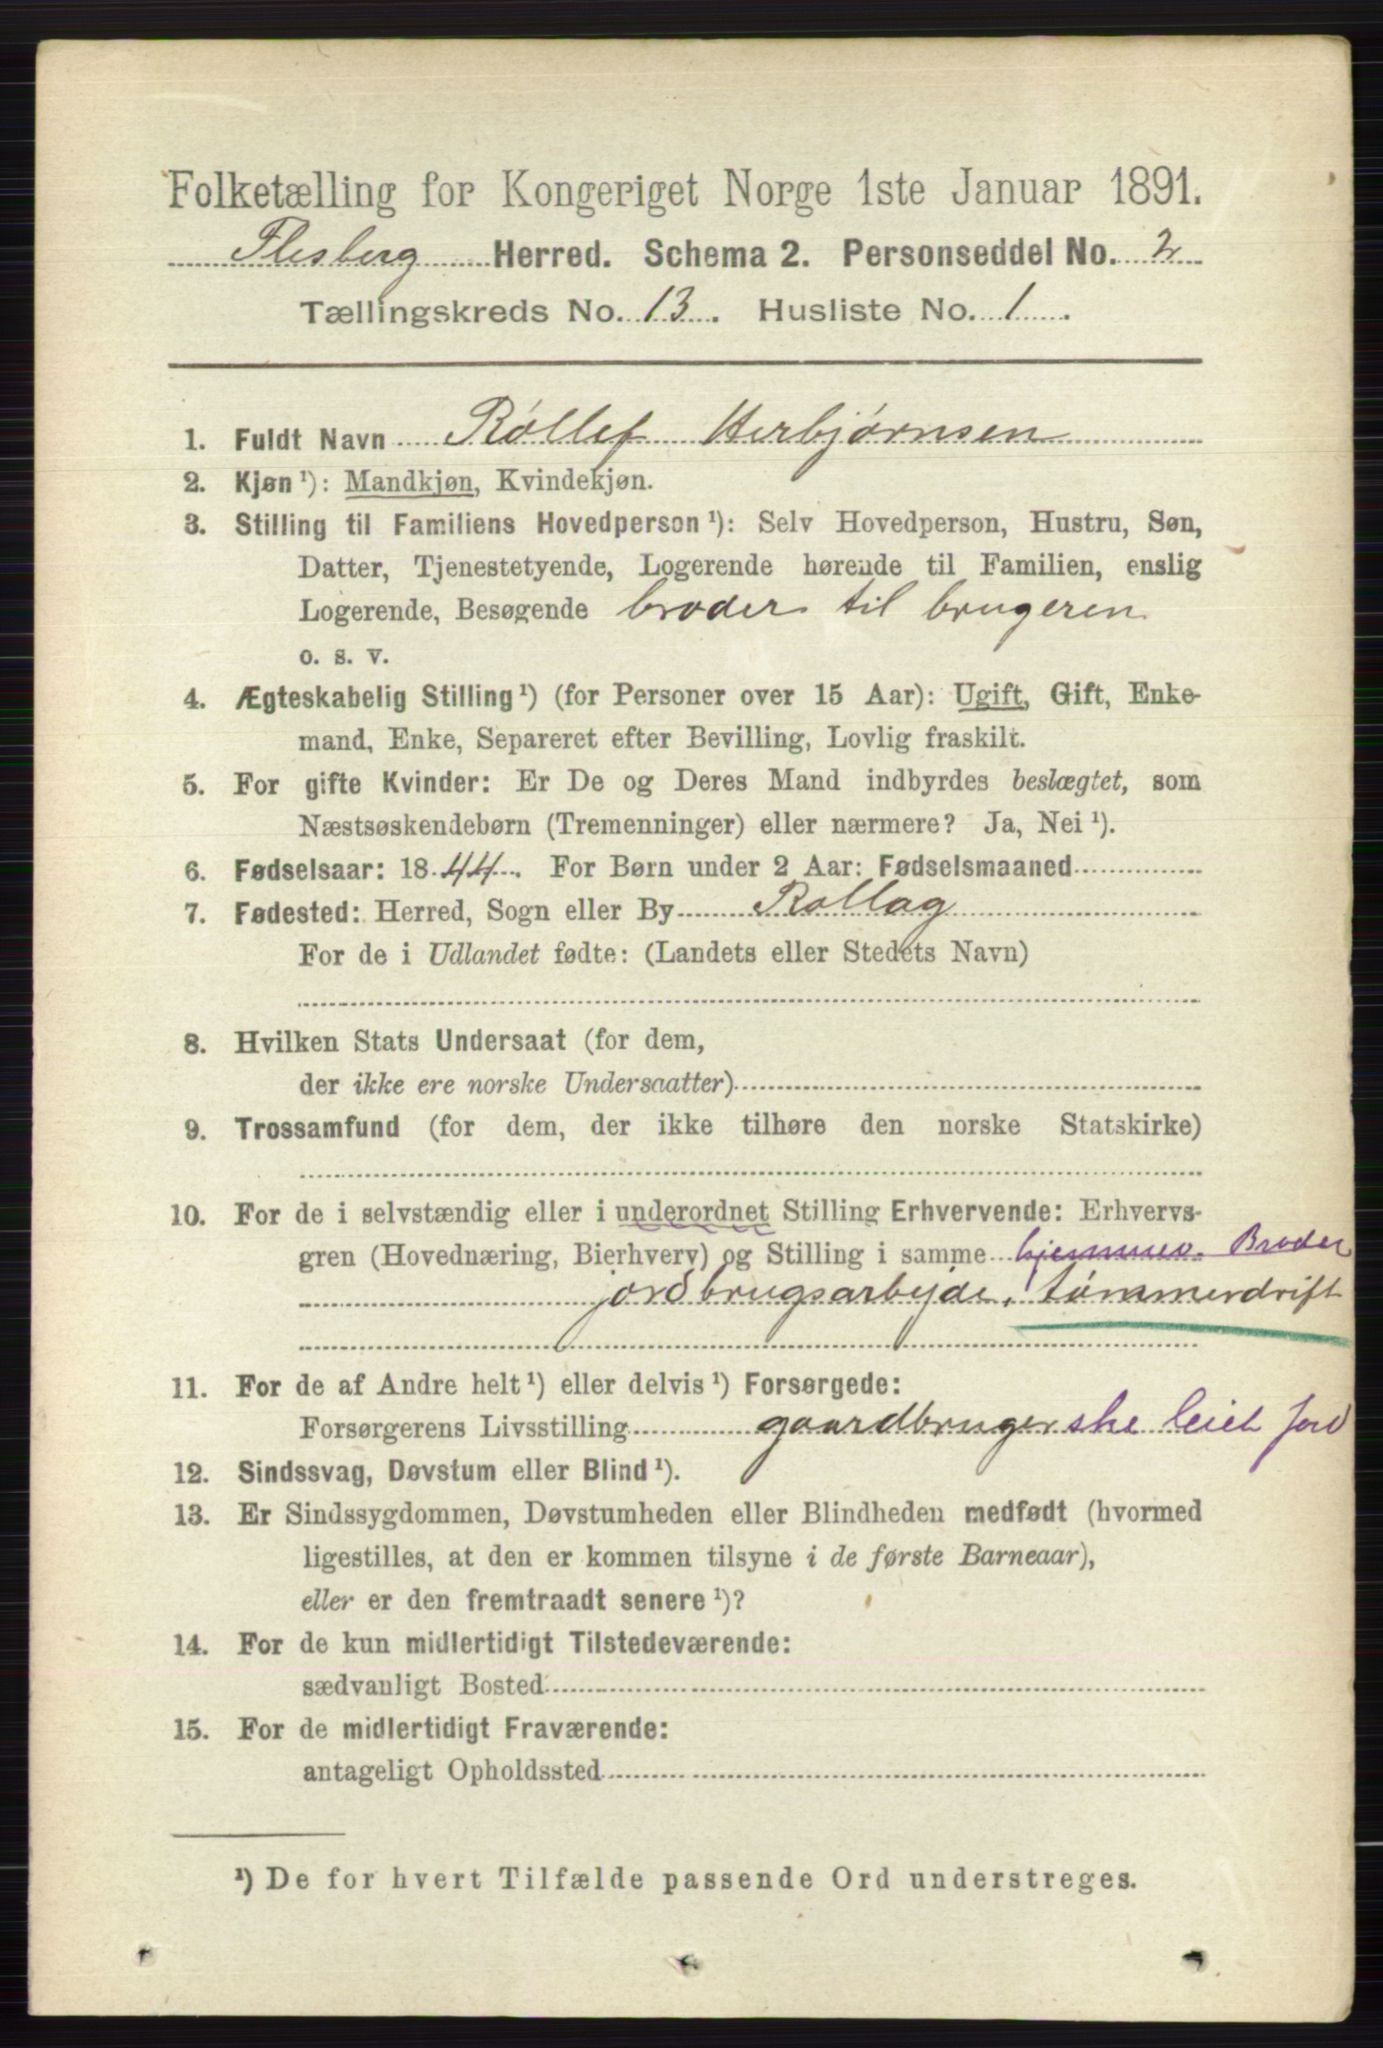 Folketælling for Kongeriget Norge 1ste Januar 1891.
Flesberg Herred. Schema 2. Personseddel No. 2
Tællingskreds No. 13. Husliste No. 1.
1. Fuldt Navn Róllef Herbjørnsen
2. Kjøn ¹): Mandkjøn, Kvindekjøn.
3. Stilling til Familiens Hovedperson ¹): Selv Hovedperson, Hustru, Søn,
Datter, Tjenestetyende, Logerende hørende til Familien, enslig
Logerende, Besøgende broder til brugeren
o. s. v.
4. Ægteskabelig Stilling ¹) (for Personer over 15 Aar): Ugift, Gift, Enke-
mand, Enke, Separeret efter Bevilling, Lovlig fraskilt.
5. For gifte Kvinder: Er De og Deres Mand indbyrdes beslægtet, som
Næstsøskendebørn (Tremenninger) eller nærmere? Ja, Nei ¹).
6. Fødselsaar: 1844. For Børn under 2 Aar: Fødselsmaaned
7. Fødested: Herred, Sogn eller By Rollag
For de i Udlandet fødte: (Landets eller Stedets Navn)
8. Hvilken Stats Undersaat (for dem,
der ikke ere norske Undersaatter)
9. Trossamfund (for dem, der ikke tilhøre den norske Statskirke)
10. For de i selvstændig eller i underordnet Stilling Erhvervende: Erhvervs-
gren (Hovednæring, Bierhverv) og Stilling i samme hjemmev. Broder
jordbrugsarbejde, tømmerdrift
11. For de af Andre helt ¹) eller delvis ¹) Forsørgede:
Forsørgerens Livsstilling gaardbrugerske leiet Jord
12. Sindssvag, Døvstum eller Blind ¹).
13. Er Sindssygdommen, Døvstumheden eller Blindheden medfødt (hvormed
ligestilles, at den er kommen tilsyne i de første Barneaar),
eller er den fremtraadt senere ¹)?
14. For de kun midlertidigt Tilstedeværende:
sædvanligt Bosted
15. For de midlertidigt Fraværende:
antageligt Opholdssted
¹) De for hvert Tilfælde passende Ord understreges.